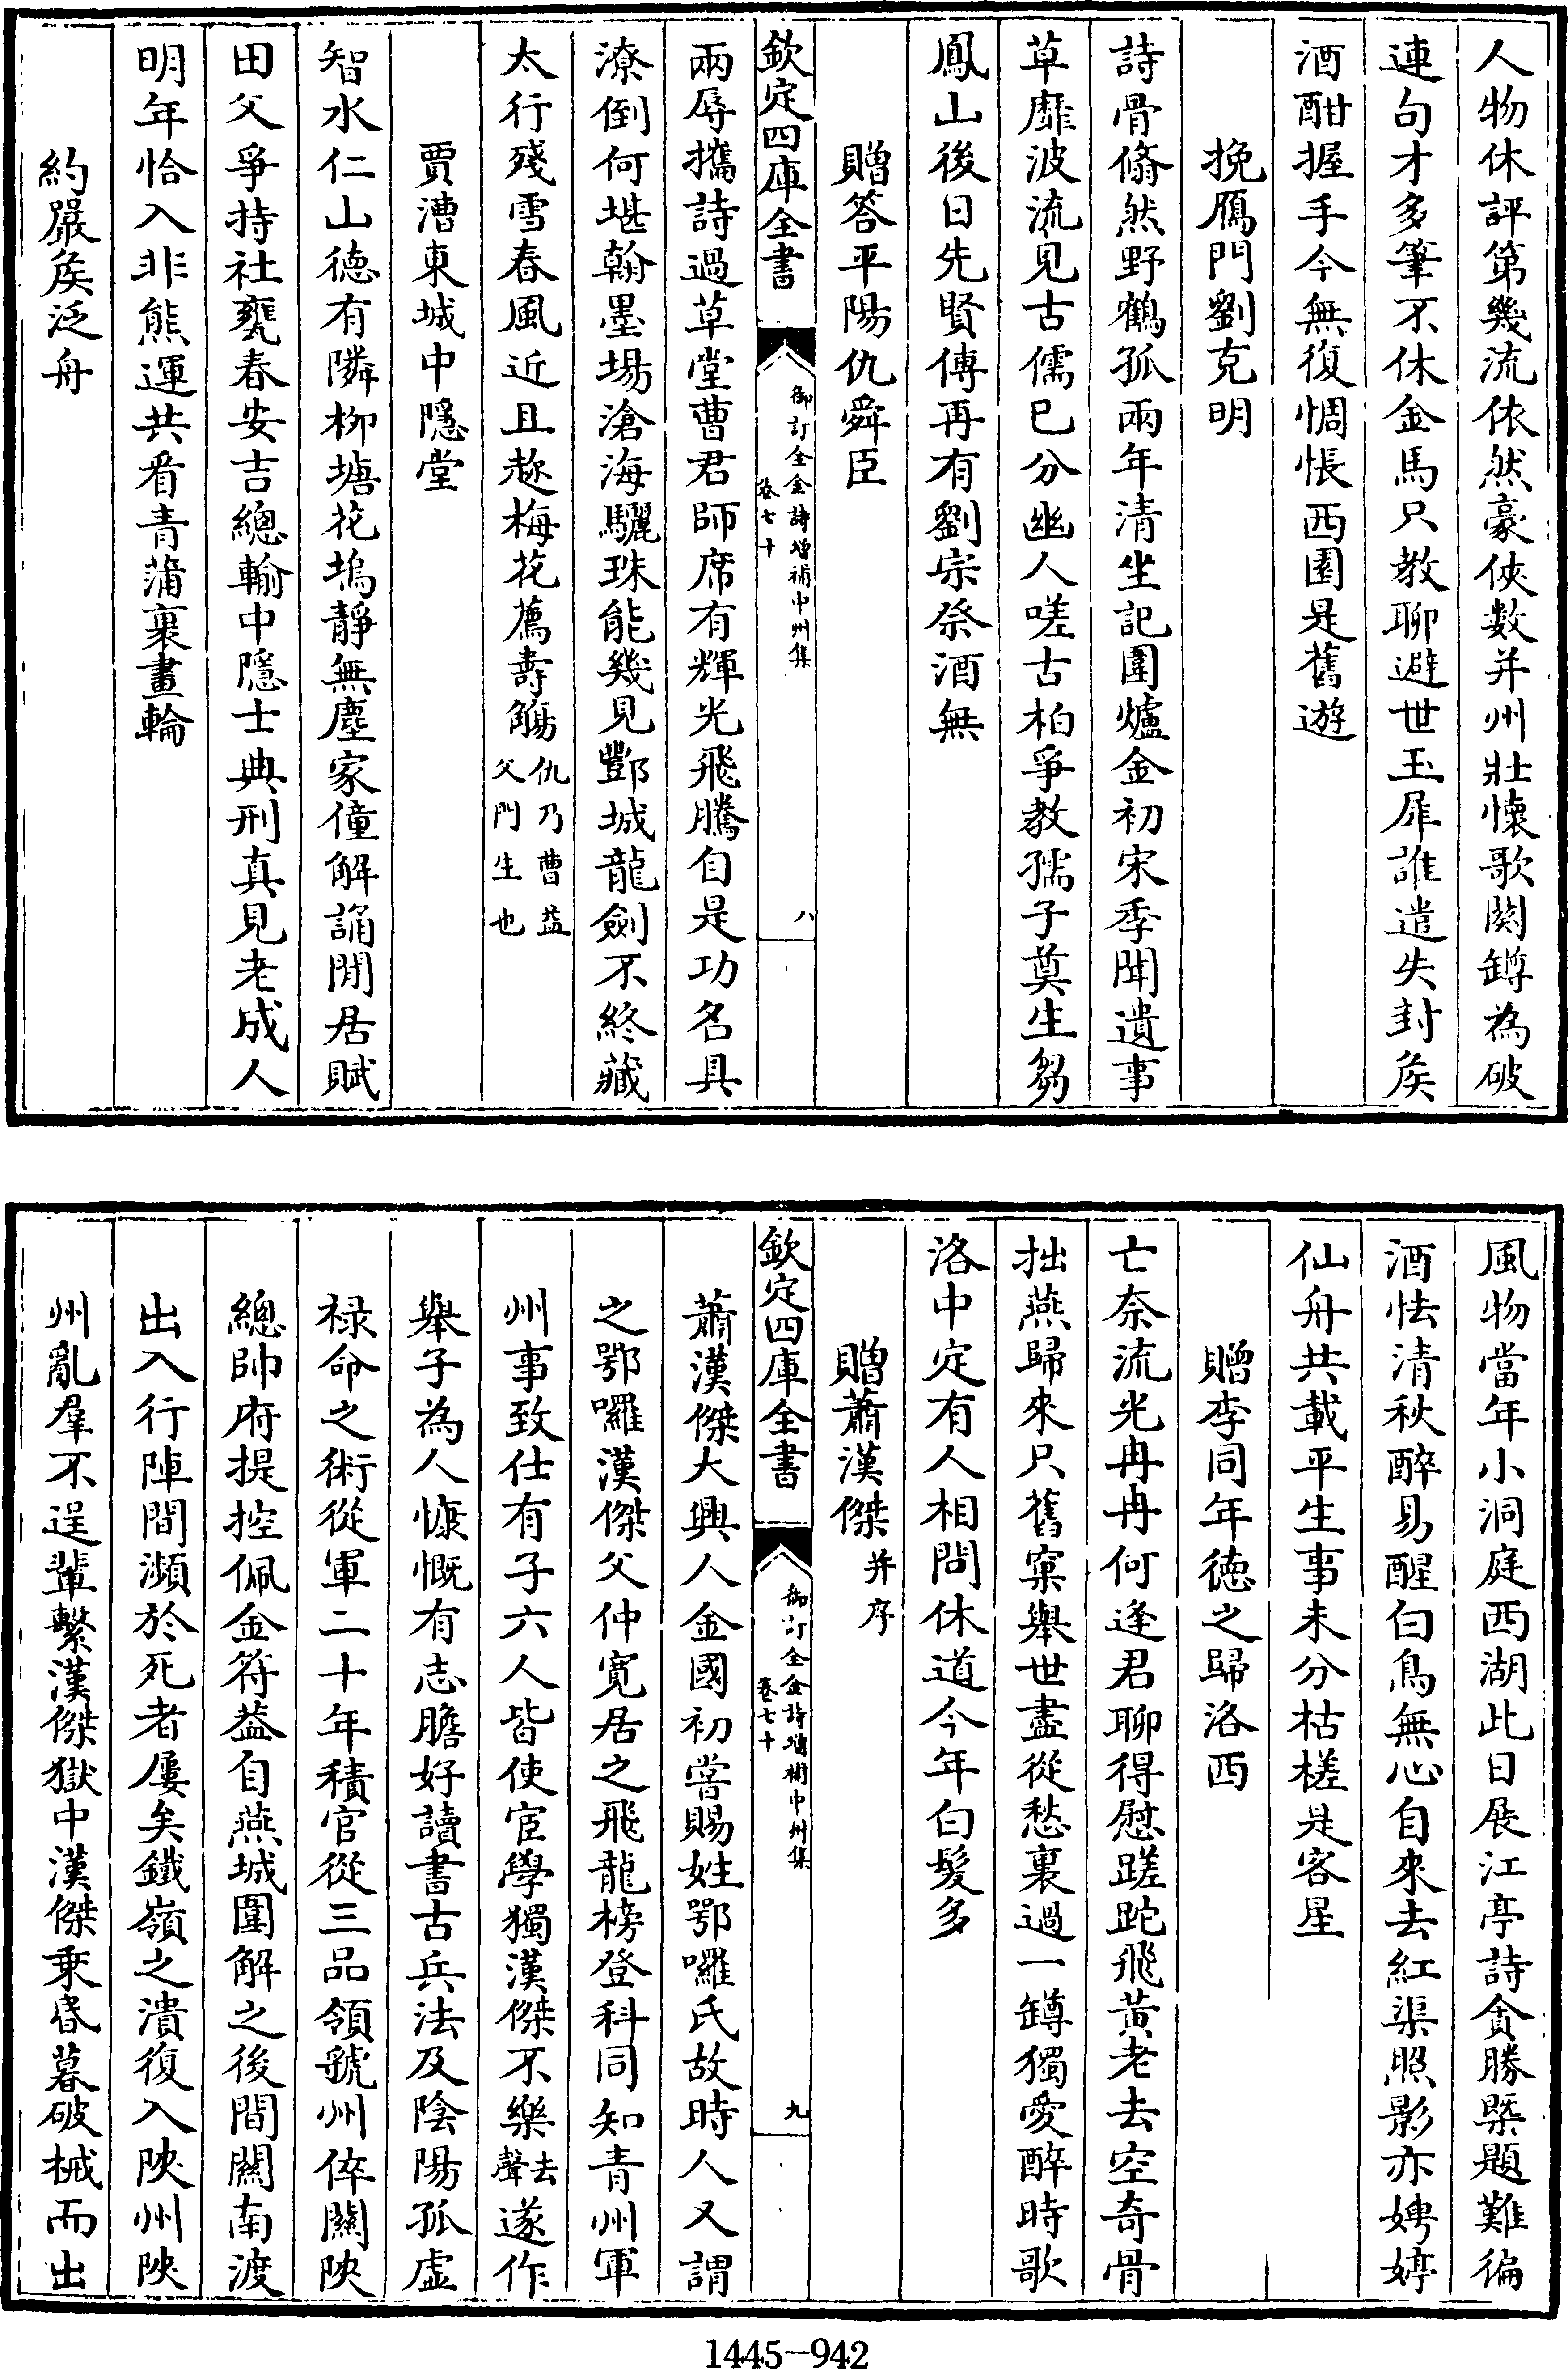 人物休評第幾流依然豪俠數并州壯懷歌闋罇為破
連句才多筆不休金馬只教聊避世玉犀誰遣失封侯
酒酣握手今無復惆悵西園是舊遊
挽鴈門劉克明
詩骨翛然野鶴孤兩年清坐記圍爐金初宋季聞遺事
草靡波流見古儒已分幽人嗟古柏爭教孺子奠生芻
鳳山後日先賢傳再有劉宗祭酒無
贈答平陽仇舜臣
欽定四庫全書
御訂全金詩增補中州集
卷七十
八
兩辱攜詩過草堂曹君師席有輝光飛騰自是功名具
潦倒何堪翰墨場滄海驪珠能幾見酆城龍劍不終藏
太行殘雪春風近且趂梅花薦壽觴仇乃曹益父門生也
賈漕東城中隱堂
智水仁山德有隣柳塘花塢靜無塵家僮解誦閒居賦
田父爭持社甕春安吉總輸中隱士典刑真見老成人
明年恰入非熊運共看青蒲裹畫輪
約嚴侯泛舟
風物當年小洞庭西湖此日展江亭詩貪勝槩題難徧
酒怯清秋醉易醒白鳥無心自來去紅渠照影亦娉婷
仙舟共載平生事未分枯槎是客星
贈李同年德之歸洛西
亡奈流光冉冉何逢君聊得慰蹉跎飛黃老去空奇骨
拙燕歸來只舊窠舉世盡從愁裏過一罇獨愛醉時歌
洛中定有人相問休道今年白髮多
贈蕭漢傑并序
欽定四庫全書
御訂全金詩增補中州集
卷七十
九
蕭漢傑大興人金國初嘗賜姓鄂囉氏故時人又謂
之鄂囉漢傑父仲寬居之飛龍榜登科同知青州軍
州事致仕有子六人皆使宦學獨漢傑不樂去聲遂作
舉子為人慷慨有志膽好讀書古兵法及陰陽孤虛
祿命之術從軍二十年積官從三品領虢州倅關陝
總帥府提控佩金符葢自燕城圍解之後間關南渡
出入行陣間瀕於死者屢矣鐵嶺之潰復入陝州陝
州亂羣不逞輩繫漢傑獄中漢傑乗昏暮破械而出
1445-942